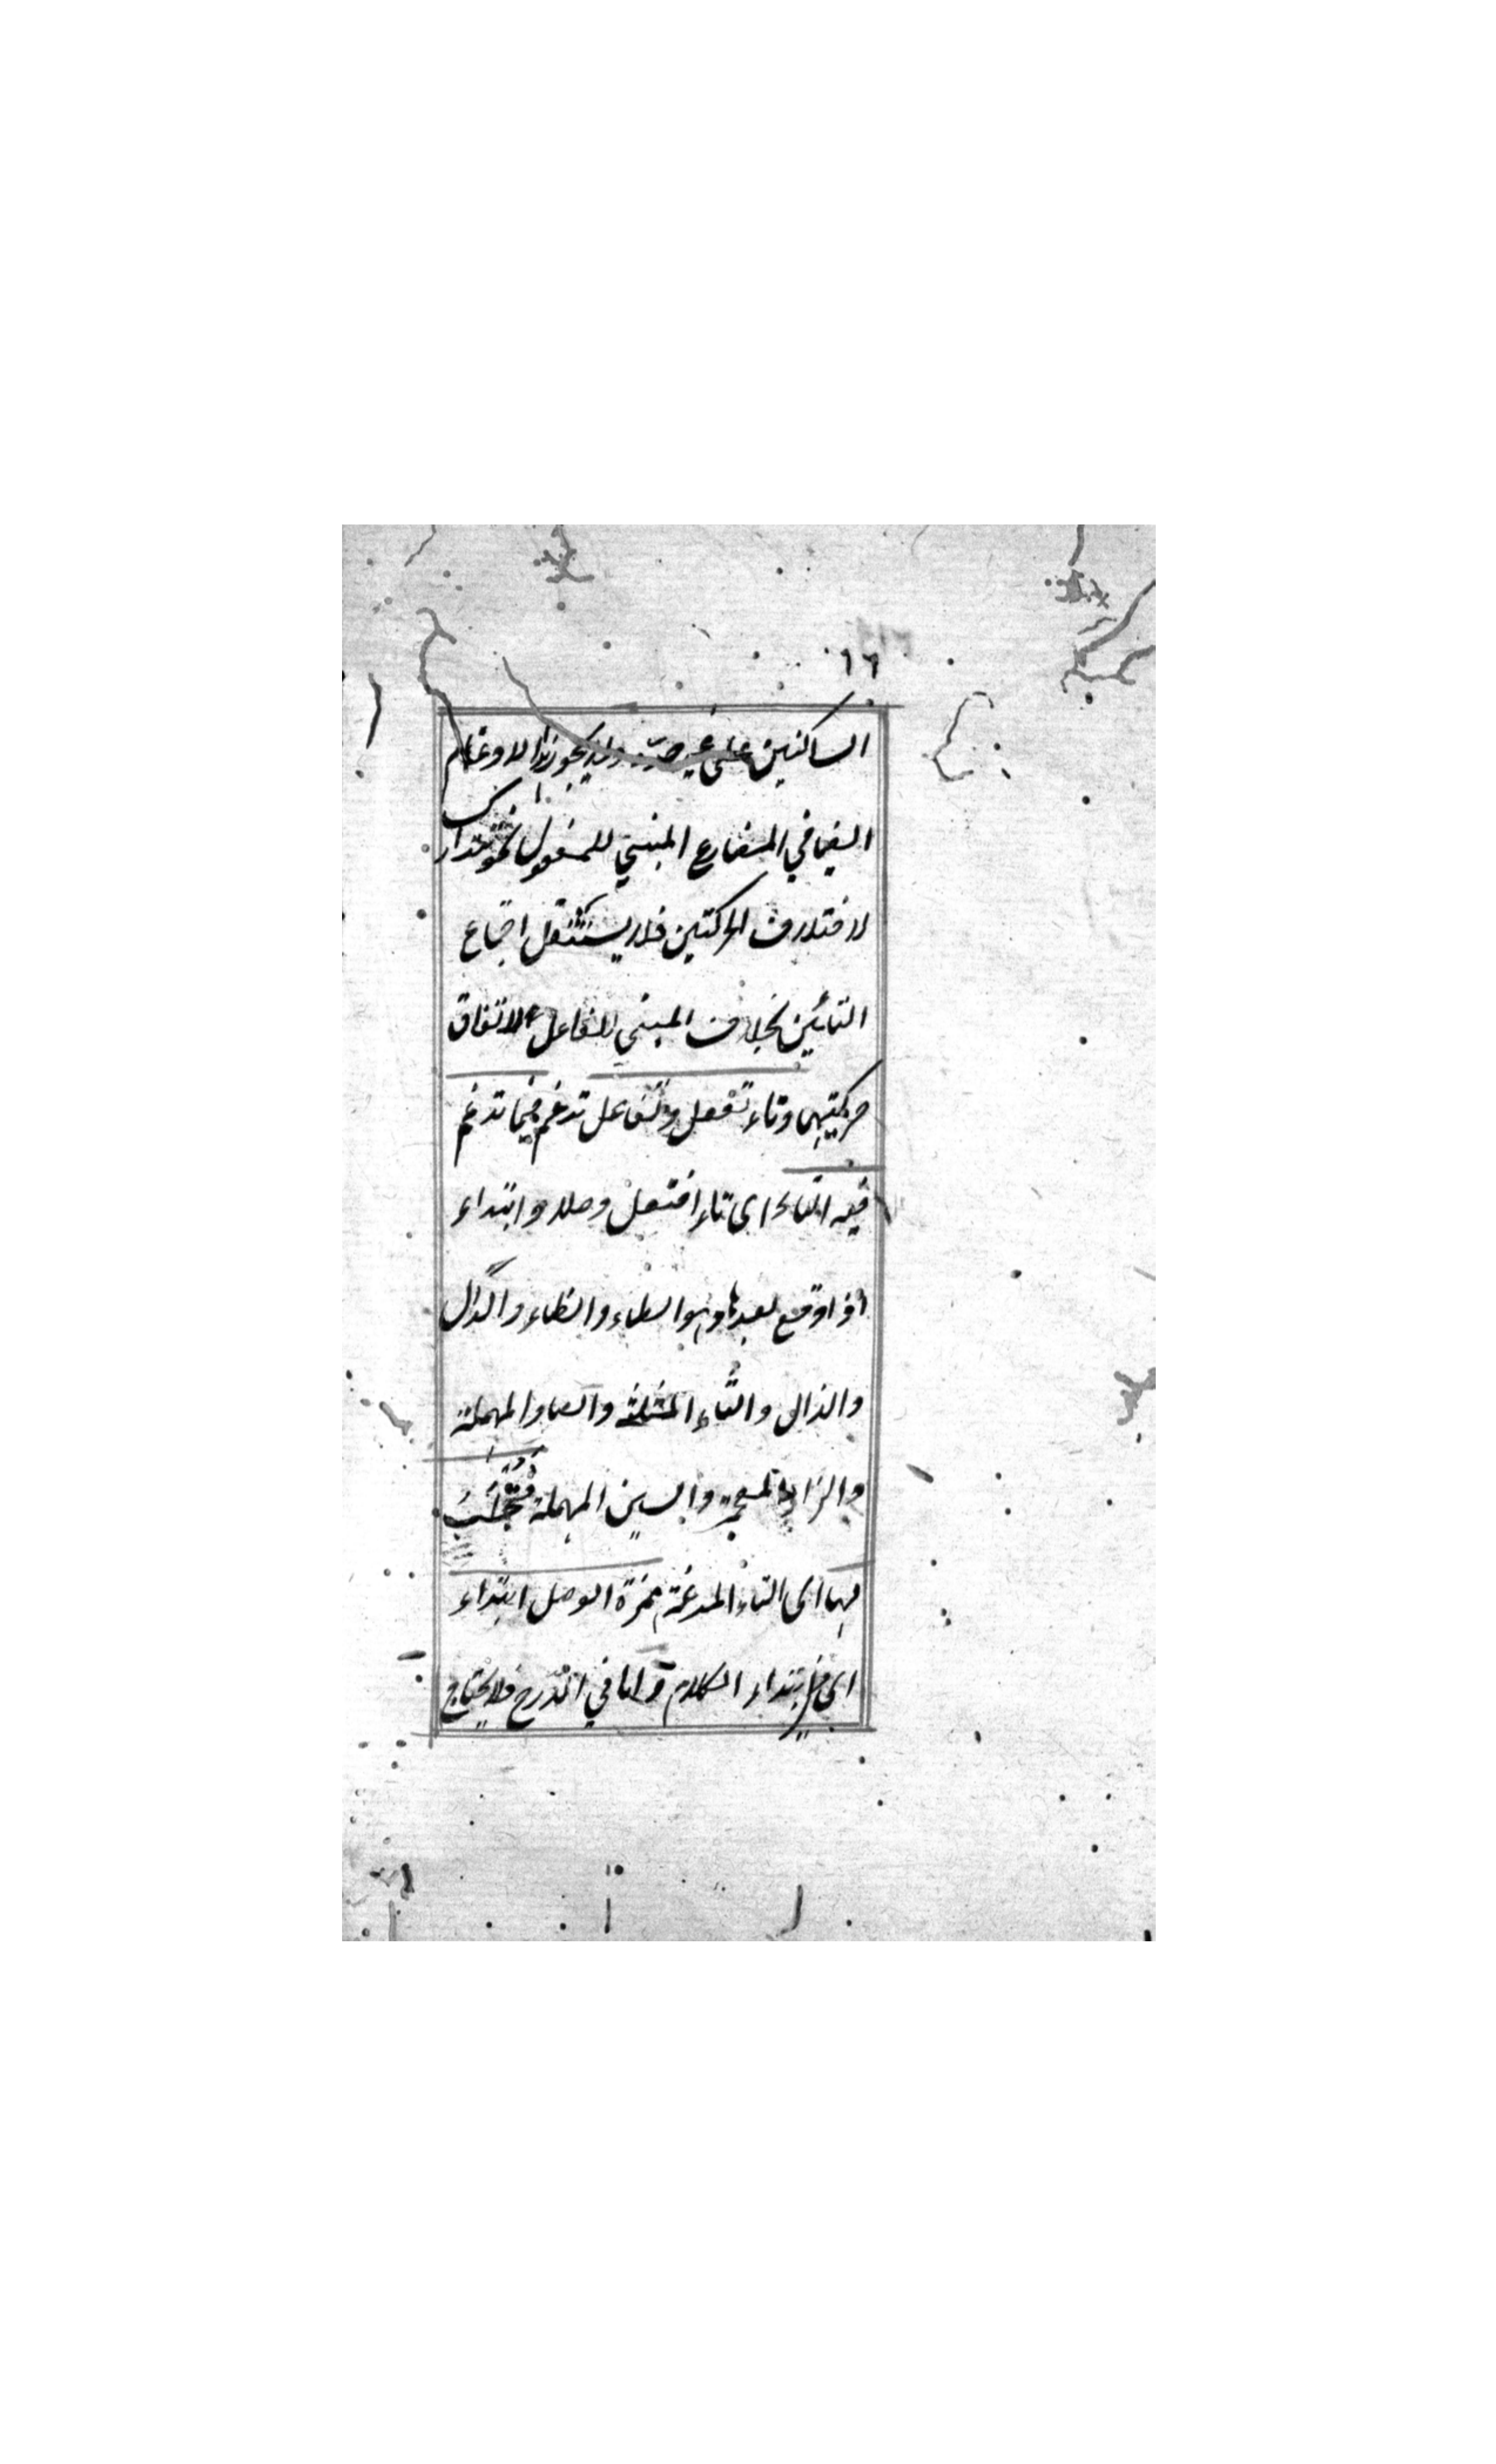 ١٦
الساكنين على غير حدّه ولا يجوز هذا الادغام
ايضا في المضارع المبني للمفعول نحو تتدارك
لاختلاف الحركتين فلا يستثقل اجتماع
التائين بخلاف المبني للفاعل لاتفاق
حركتيهما وتاء تفعل وتفاعل تدغم فيما تدغم
فيه التاء اى تاء افتعل وصلا وابتداء
اذا وقع بعدها وهو الطاء والظاء والدال
والذال والثاء المثلثة والصاد المهملة
والزاء المعجمة والسين المهملة فتُجلَبُ
لها اى التاء المدغمة همزة الوصل ابتداء
اى في ابتداء الكلام واما في الدرج فلا يحتاج